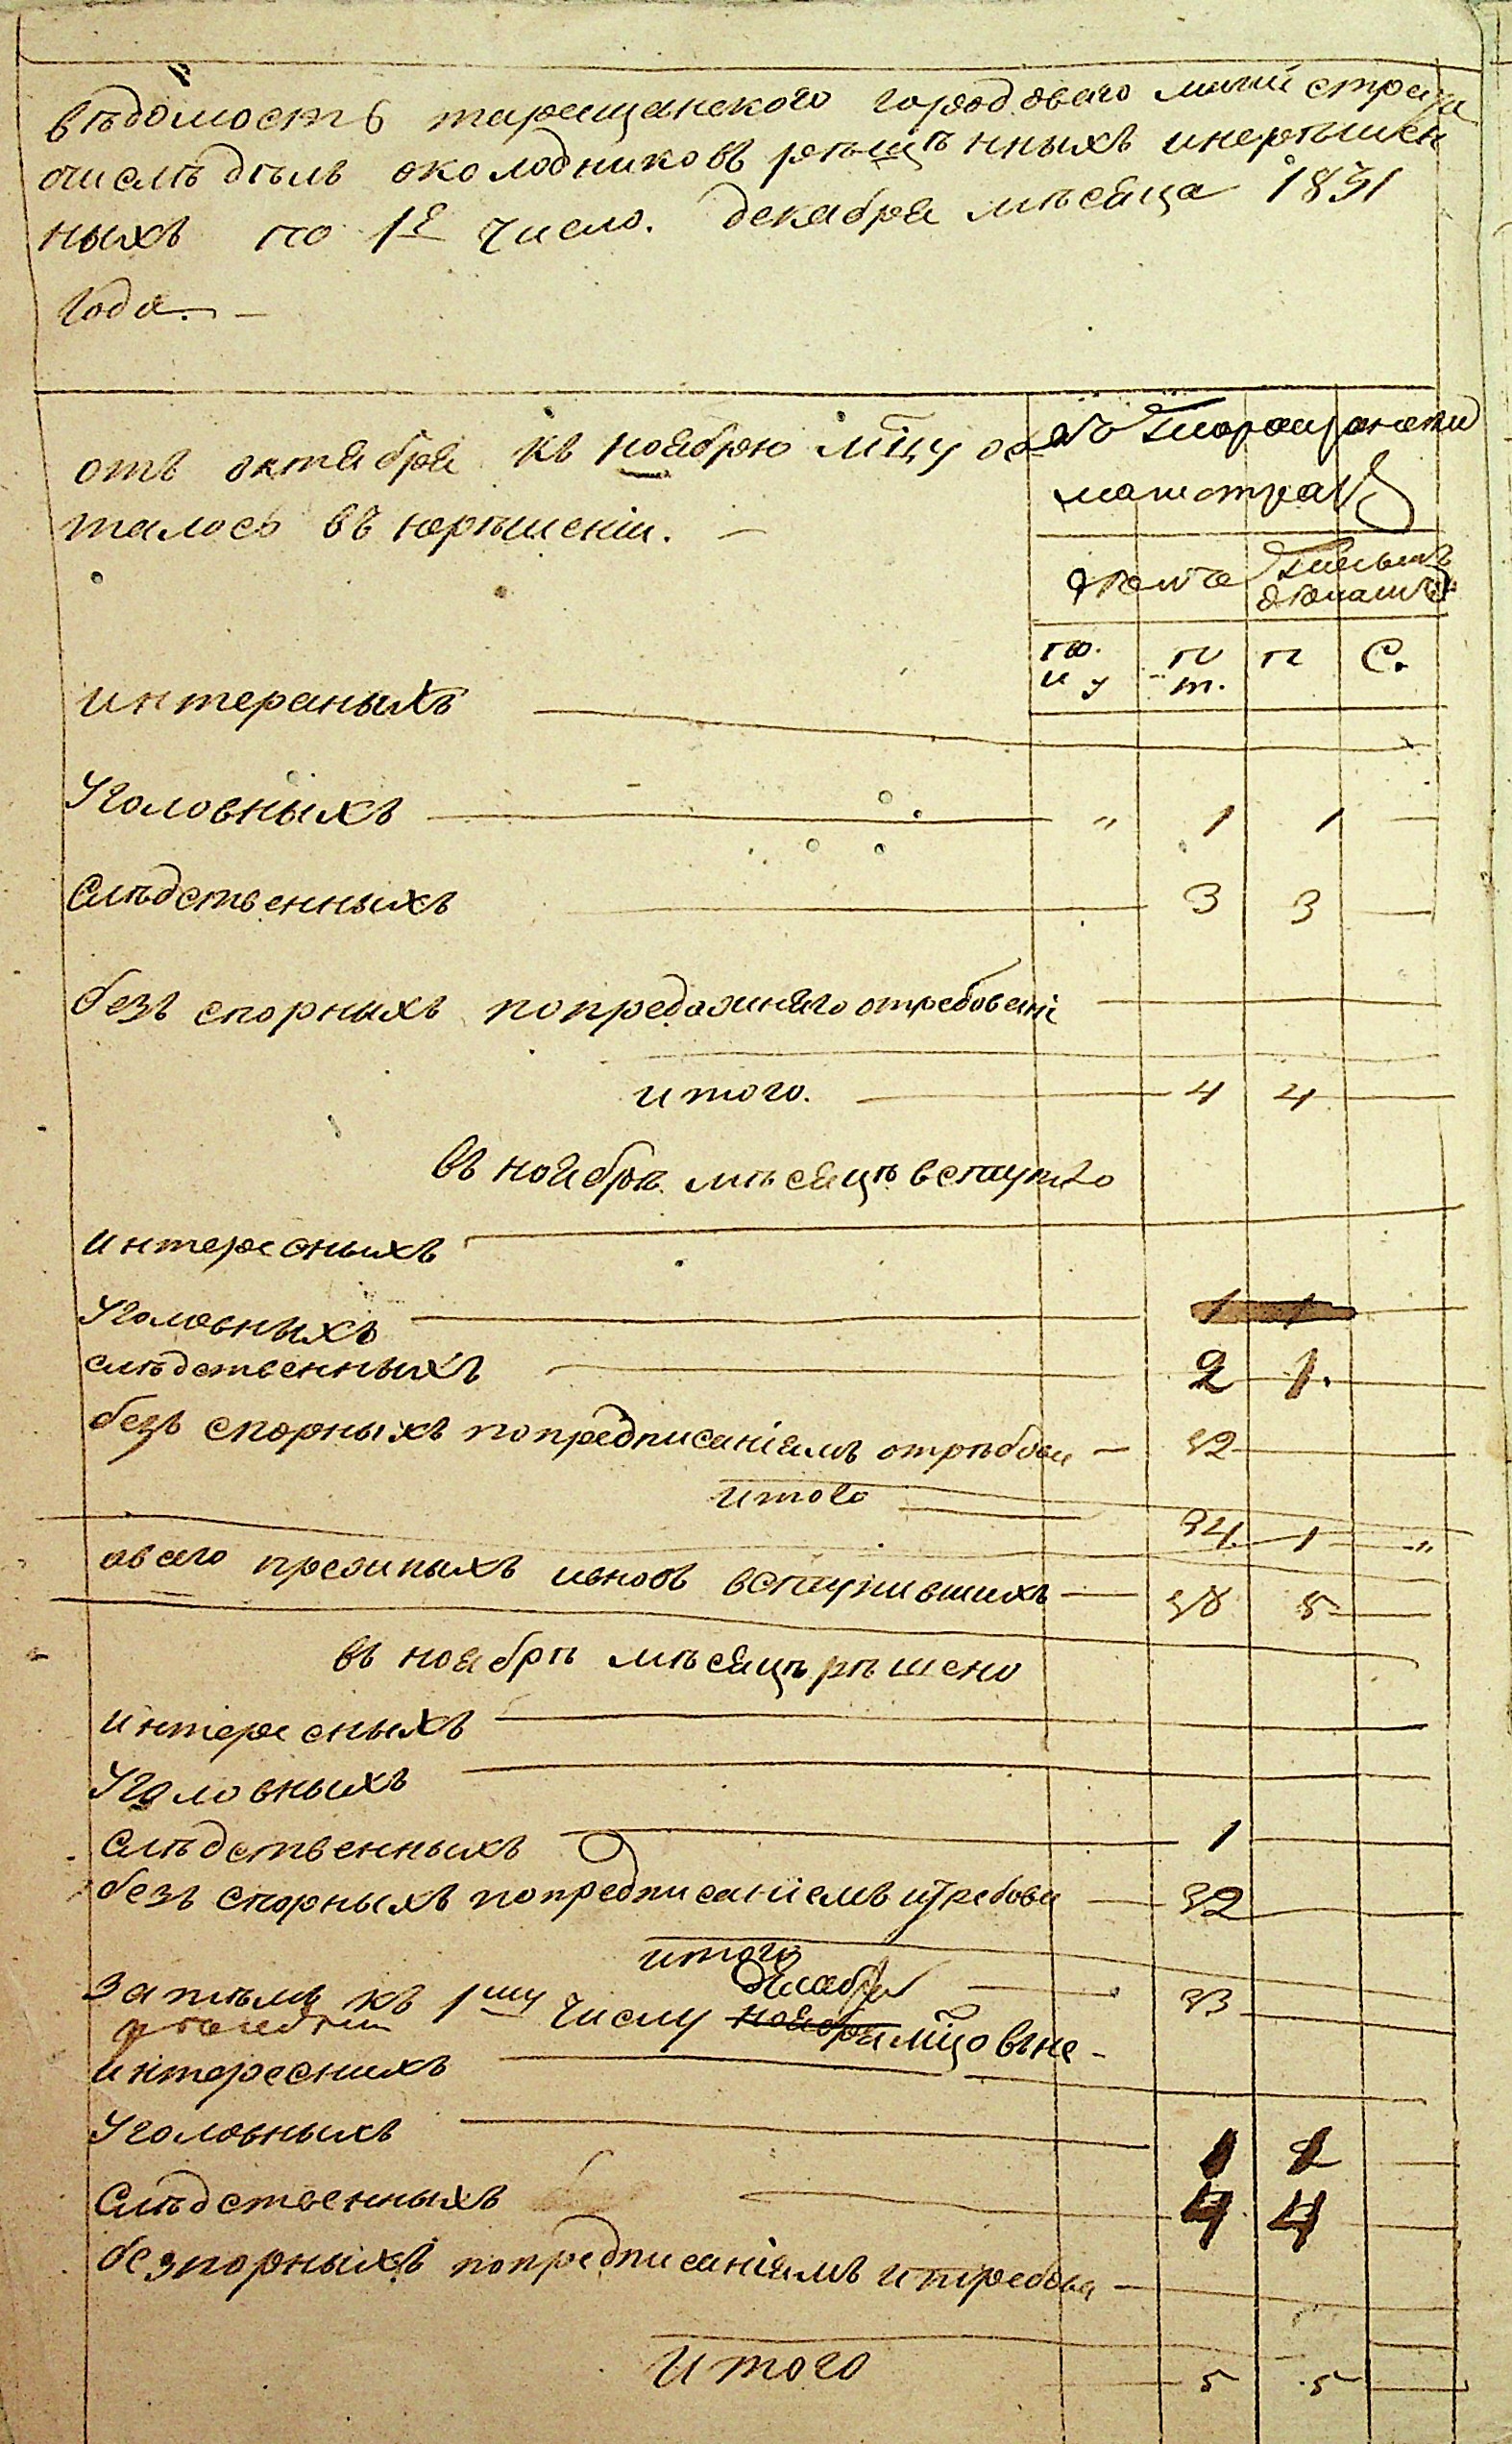 вѣдомость таращанского городоваго магистрата
очислѣ дѣлъ околодниковъ рѣшѣнныхъ инерѣшен
ныхъ по 1е число. декабря мѣсяца 1831
года. —
отъ октября къ ноябрю мцу ос
талось въ нерѣшеніи. —
интерсныхъ
Уголовныхъ — " 1 1 —
Слѣдственныхъ — 3 3 —
безъ спорныхъ
итого. — 4 4 —
въ ноябрѣ мѣсяцѣ вступило
интересныхъ —
Уголовныхъ — 1 1 —
слѣдственныхъ — 2 1. —
безъ спорныхъ попредписаніямъ отрѣбова — 32 —
итого — 34 1 — "
авсего прежныхъ ивновъ вступившихъ — 38 5 —
въ ноябрѣ мѣсяцѣ рѣшено
интересныхъ —
Уголовныхъ —
слѣдственныхъ — 1 —
безъ спорныхъ попредписаніемъ итребова — 32 —
итого — 33 —
затѣмъ къ 1му числу декабря ноября мцо въне-
интересныхъ —
Уголовныхъ — 1 1 —
Слѣдственныхъ — 4 4 —
безпорныхъ попредписаніямъ итребова —
Итого — 5 5 —